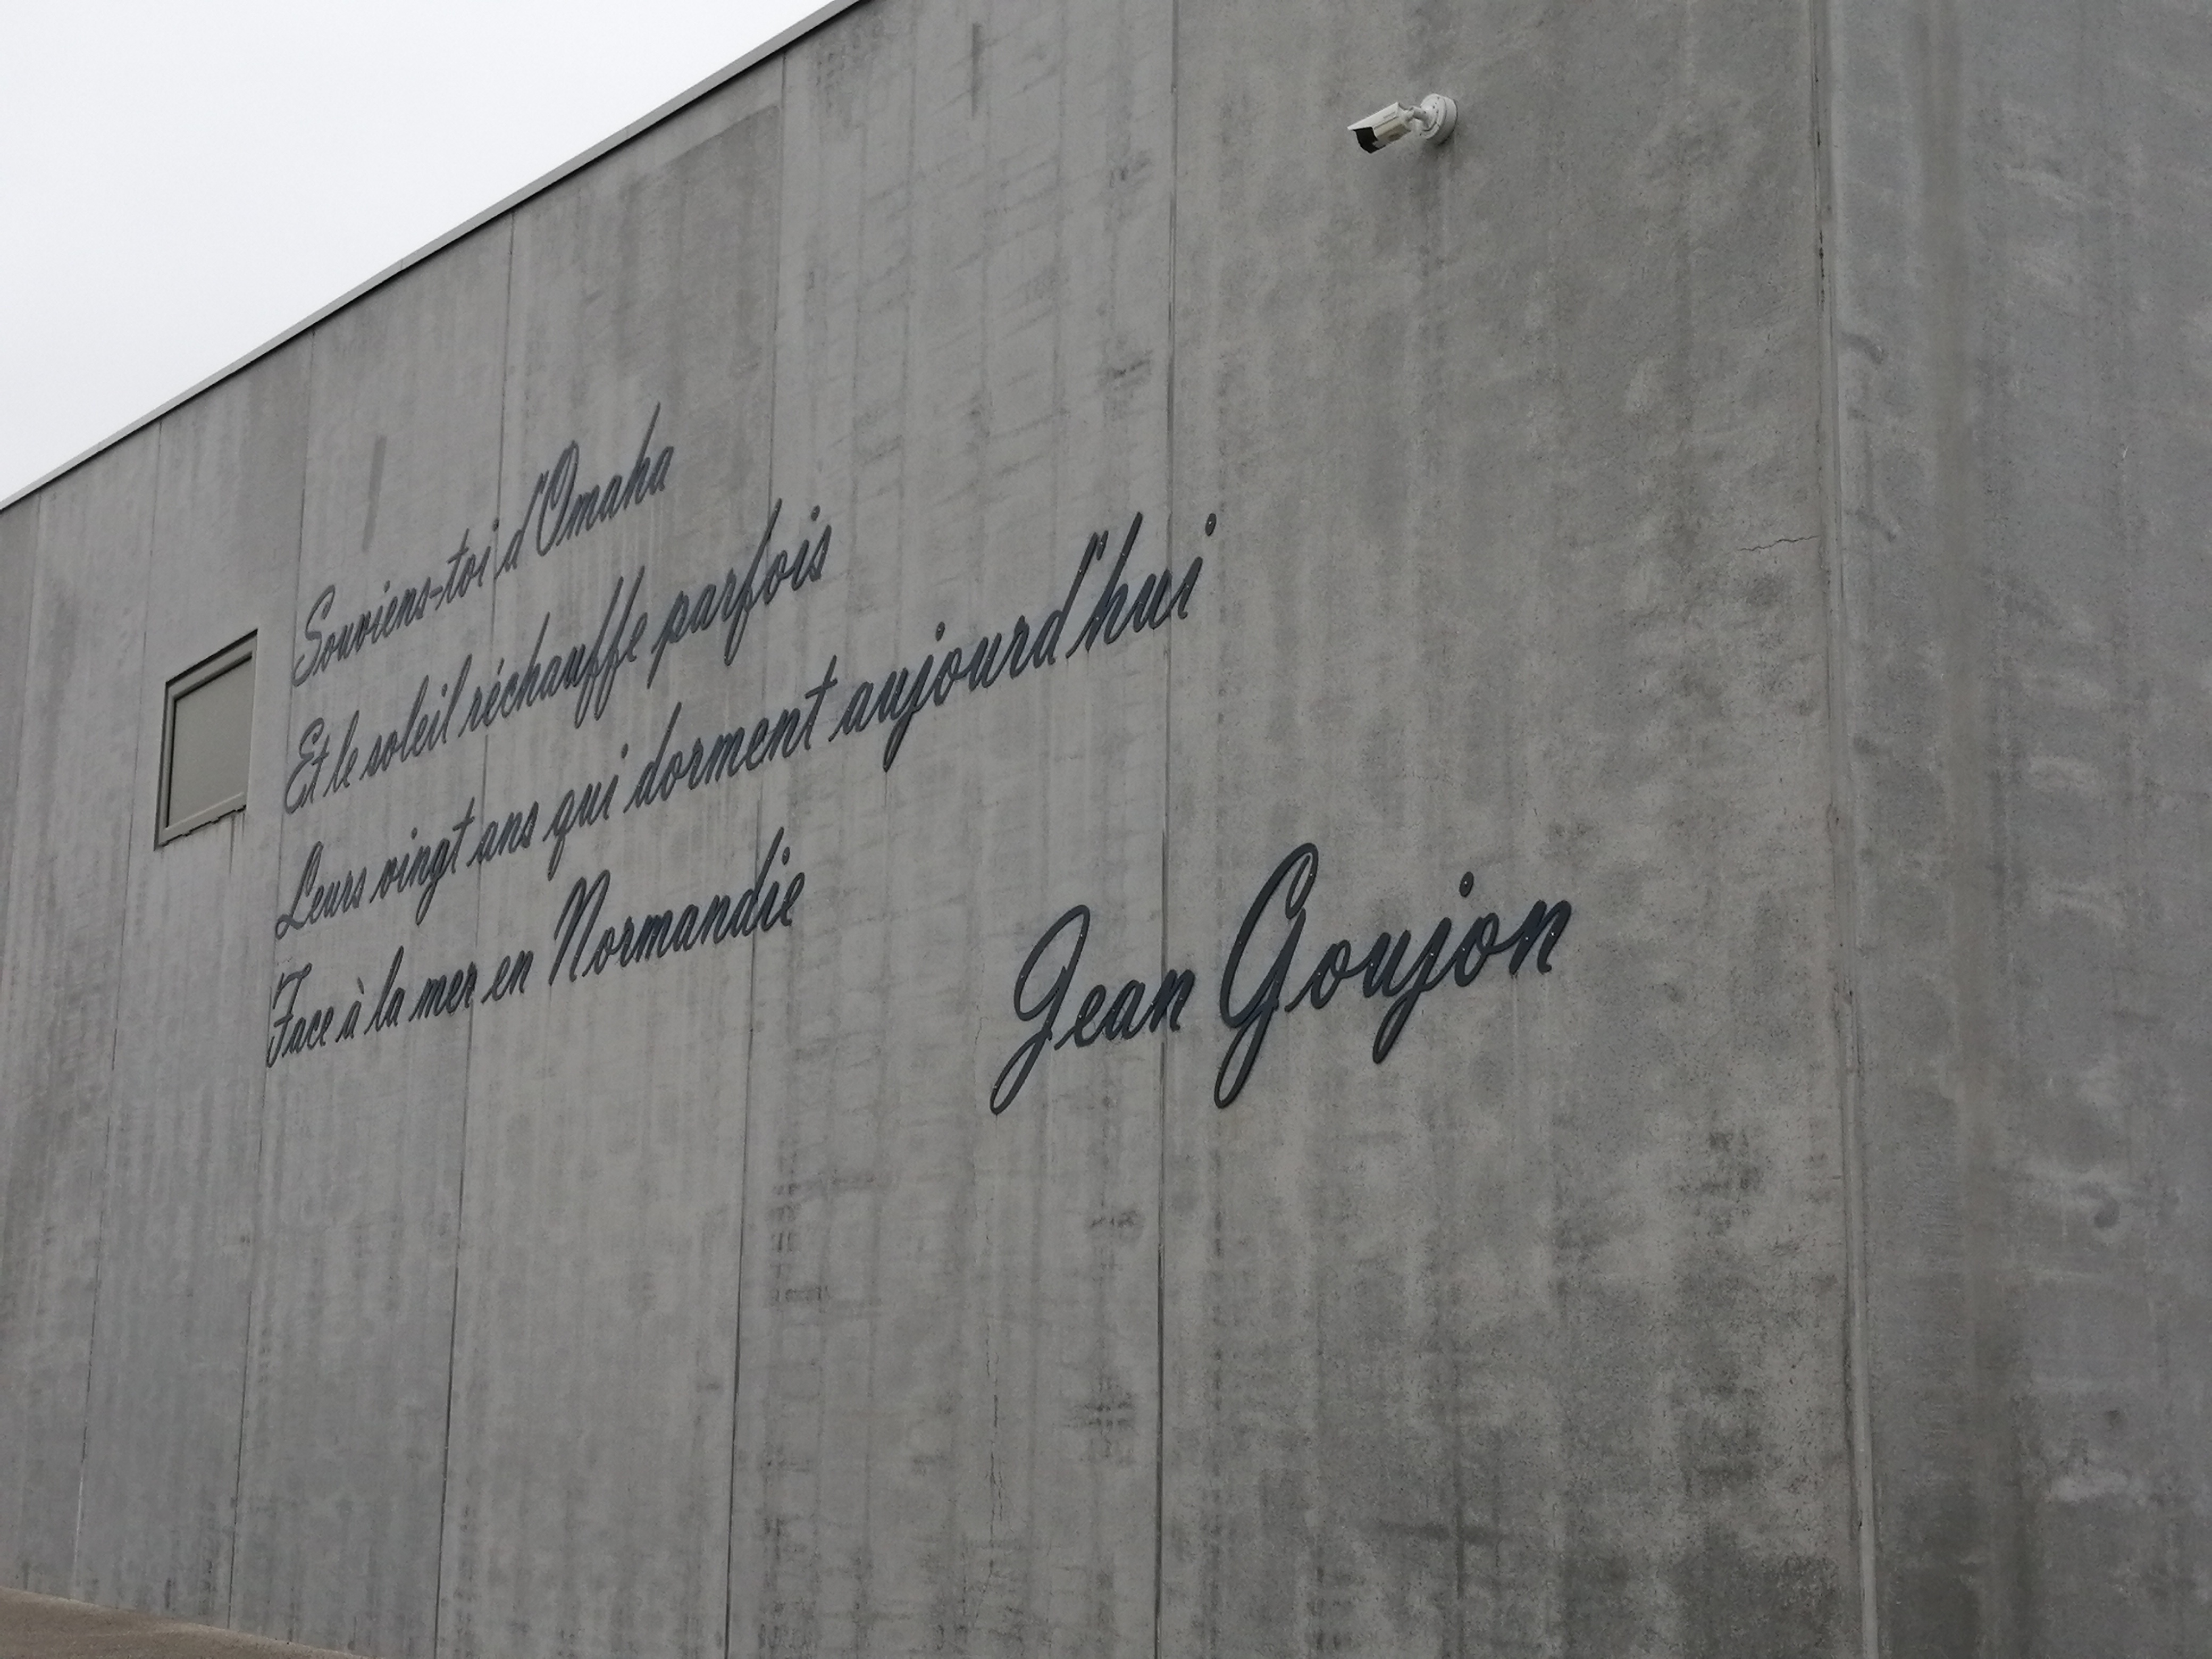 Souviens-toi d'Omaha
Et le soleil réchauffe parfois
Leurs vingt ans qui dorment aujourd'hui
Face à la mer en Normandie
Jean Goujon